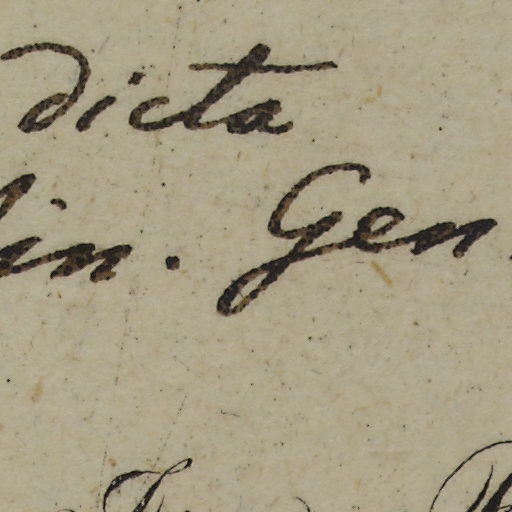 dicta
lin. Gen.